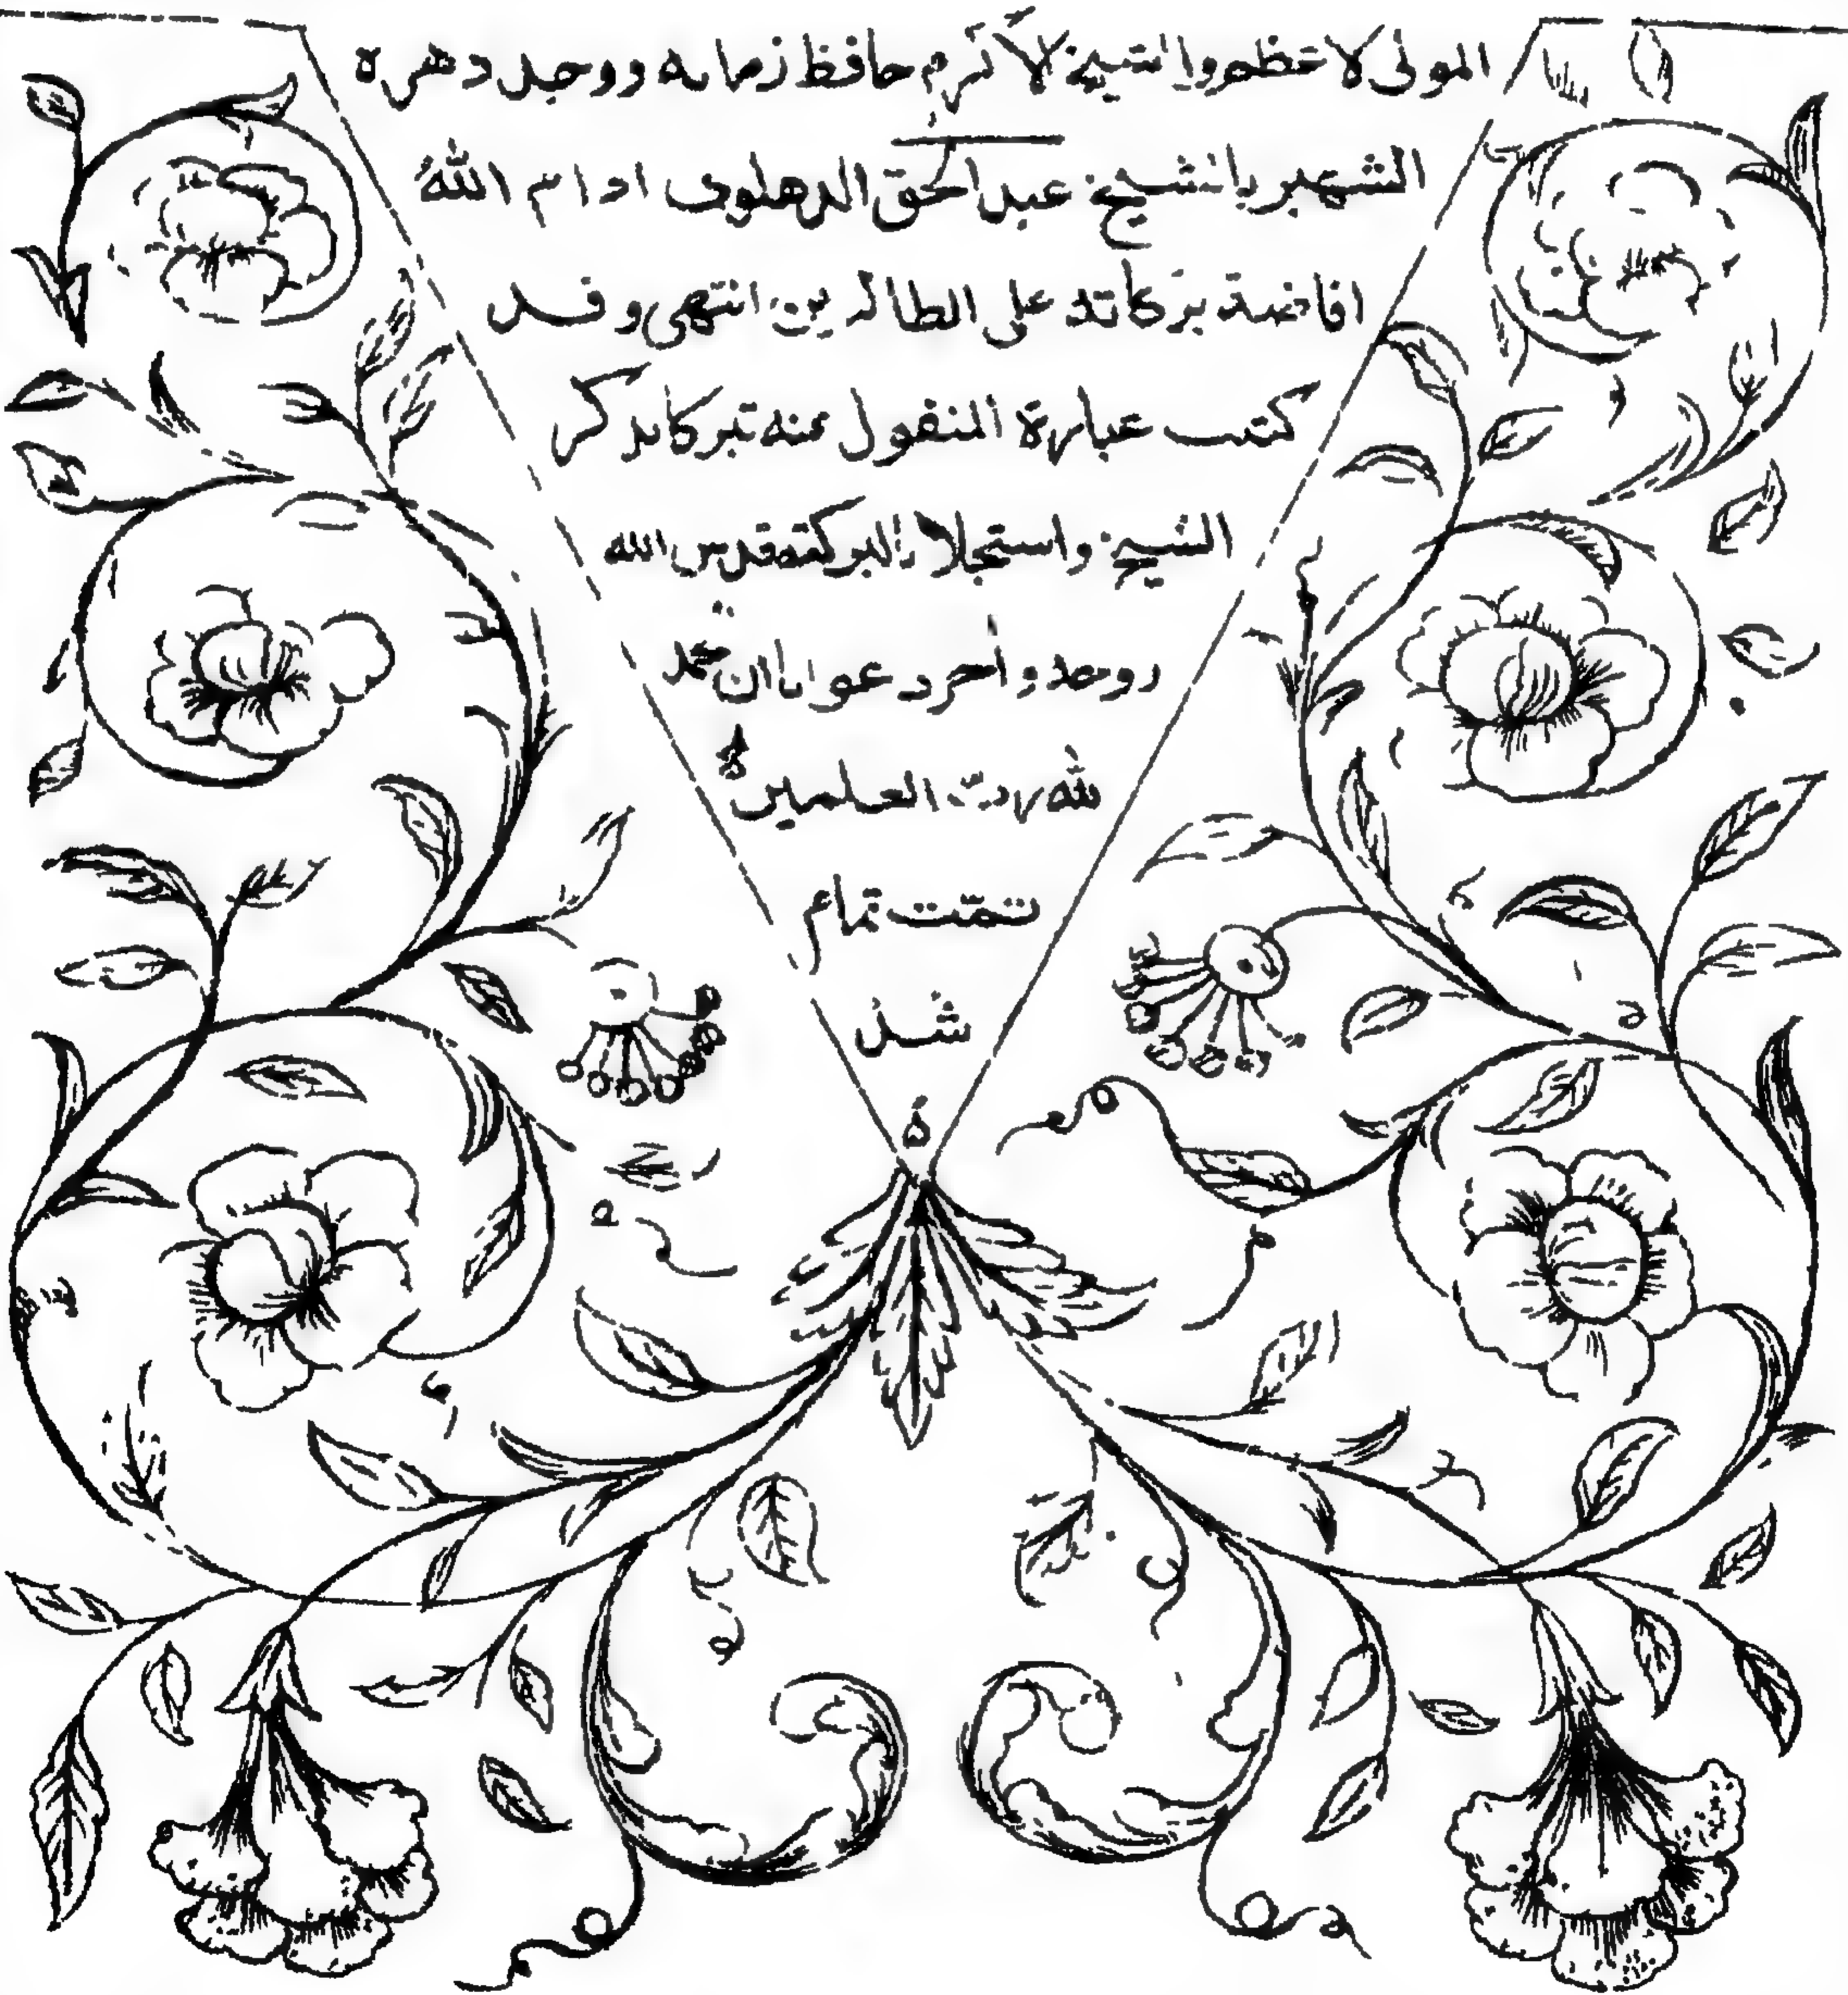 المولى الاعظم والشيخ الاكرم حافظ زمانه ووحيد دهره
الشهير بالشيخ عبد الحق الدهلوى ادام الله
افاضة بركاته على الطالبين انتهى وقد
كتب عبارة المنقول عنه تبركا بذكر
الشيخ واستجلابا للبركته قدس الله
روحه وآخر دعوانا ان الحمد
لله رب العلمين
تمّت تمام
شد
ه